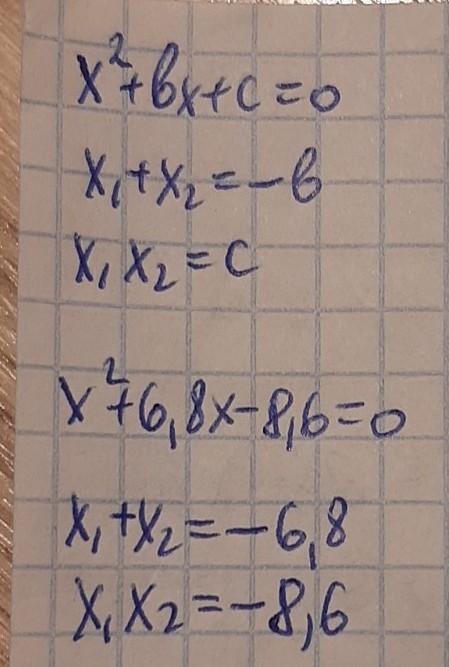 x²+bx+c=0
x₁+x₂=-b
x₁x₂=c
x²+6,8x-8,6=0
x₁+x₂=-6,8
x₁x₂=-8,6